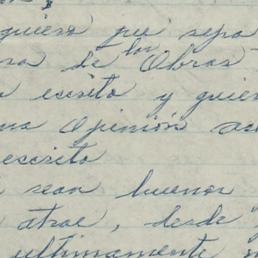 quiera que sepa
de las Obras
escrito y quien
opinión
escrito
sean buenos
atrae, desde
ultimamente